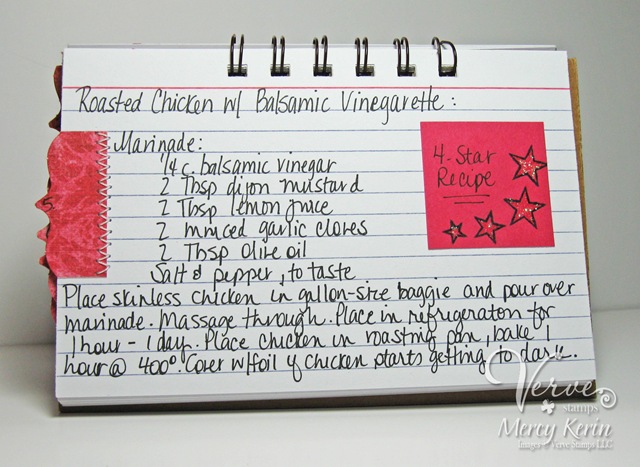 Roasted Chicken w/ Balsamic Vinegarette:
Marinade:
1/4 c. balsamic vinegar
2 Tbsp dijon mustard
2 Tbsp lemon juice
2 minced garlic cloves
2 Tbsp Olive oil
Salt & pepper, to taste
4-Star
Recipe
Place skinless chicken in gallon-size baggie and pour over
marinade. Massage through. Place in refrigerator for
1 hour - 1 day. Place chicken in roasting pan, bake 1
hour @ 400°. Cover w/foil if chicken starts getting to dark.
Verve
stamps
Mercy Kerin
Images © Verve Stamps LLC